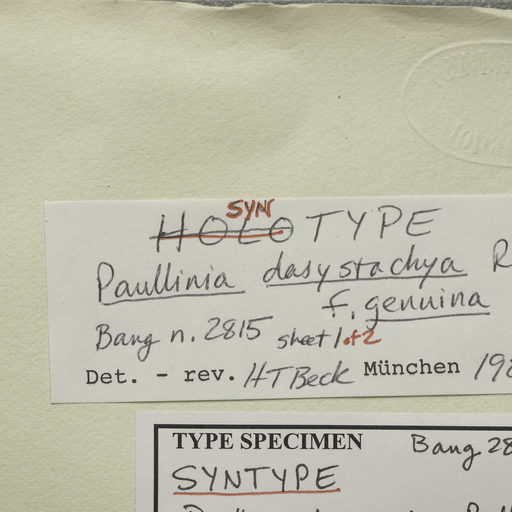 SYN
HOLOTYPE
Paullinia dasystachya R
f. genuina
Bang n. 2815 sheet 1 of 2
Det. - rev. HTBeck München 198
TYPE SPECIMEN Bang 28
SYNTYPE